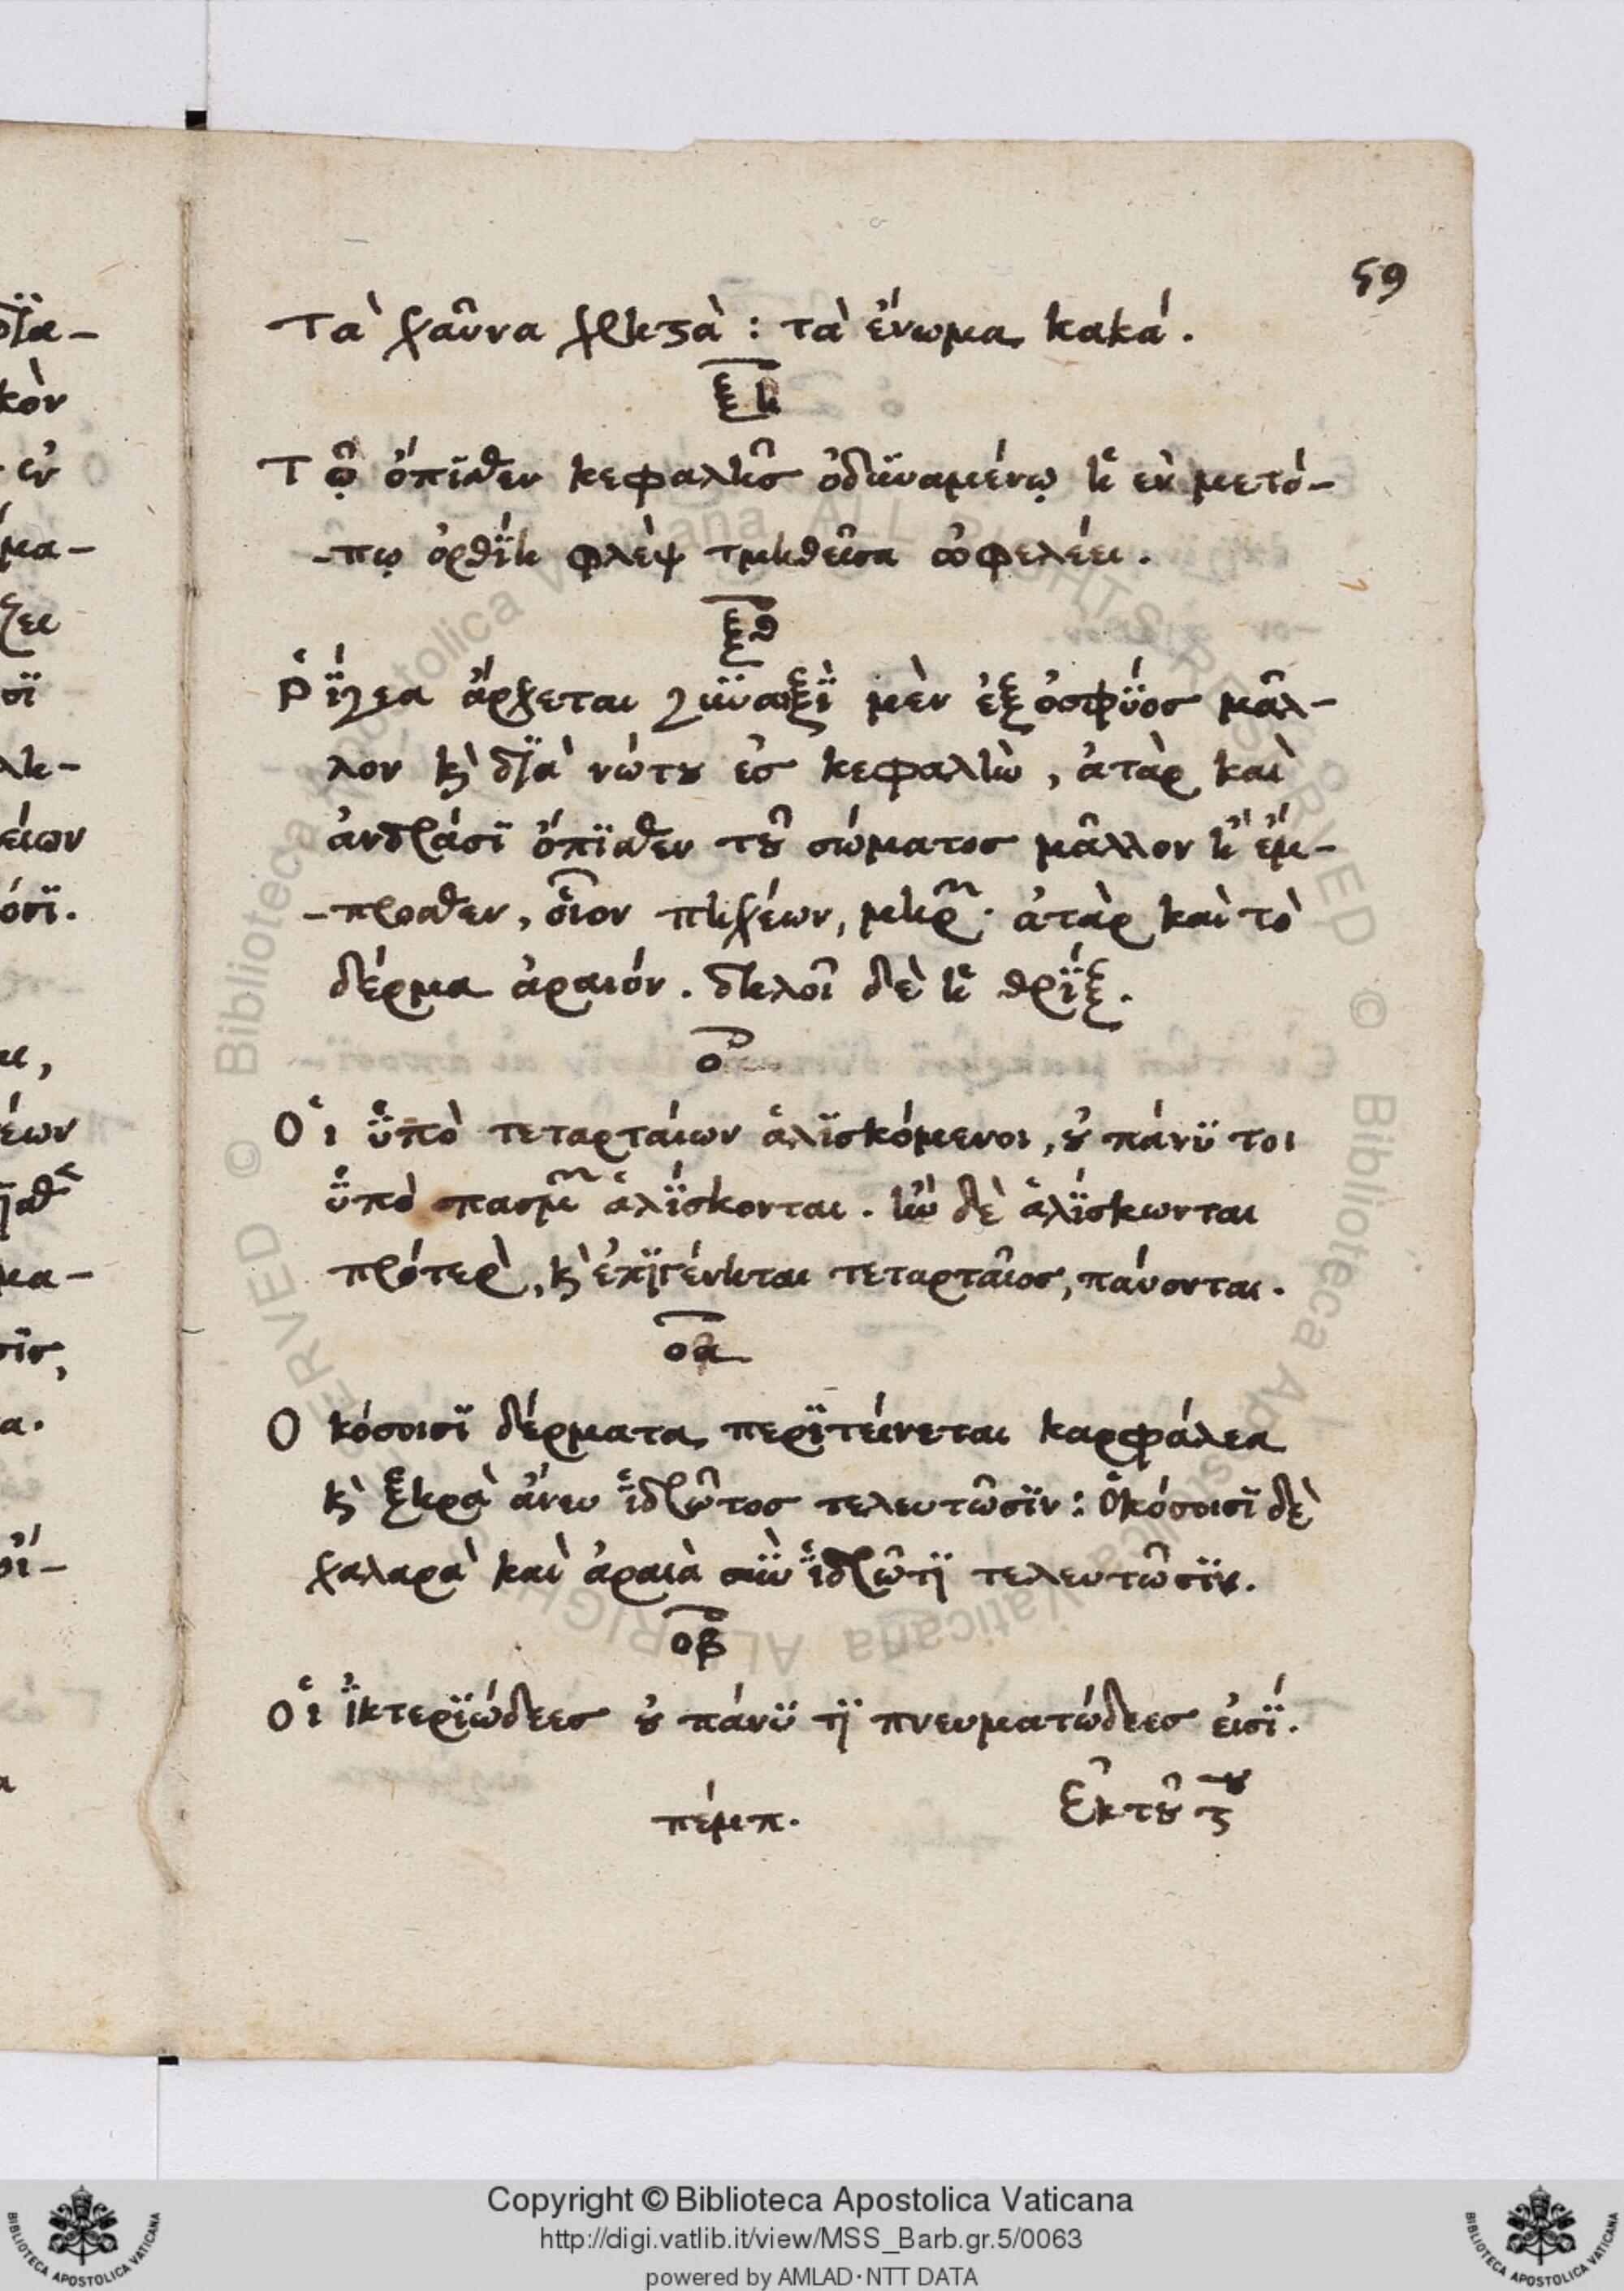 59
Τὰ χαῦνα χρηστὰ : τὰ ἔνωμα κακά.
ξη
Τῷ ὄπϊσθεν κεφαλῆς ὀδϋναμένῳ ἡ ἐν μετό-
-πῳ ὀρθΐη φλὲψ τμηθεῖσα ὠφελέει.
ξθ
Ῥΐγεα ἄρχεται γϋναιξῒ μὲν ἐξ ὀσφΰος μᾶλ-
λον κ̀ δϊὰ νώτȣ ἐς κεφαλὴν, ἀτὰρ καὶ
ἀνδράσϊ ὄπϊσθεν τȣ͂ σώματος μᾶλλον ἢ ἔμ-
-προσθεν, οἷον πηχέων, μηρῶν· ἀτὰρ καὶ τὸ
δέρμα ἀραιόν. δηλοῖ δὲ ἡ θρΐξ.
ο
Οἱ ὑπὸ τεταρταίων ἁλϊσκόμενοι, ȣ̓ πάνϋ τοι
ὑπὸ σπασμῶν ἁλΐσκονται. ἢν δὲ ἁλΐσκωνται
πρότερον, κ̀ ἐπϊγένηται τεταρταῖος, παύονται.
οα
Ὁκόσοισϊ δέρματα περϊτείνεται καρφάλεα
κ̀ ξηρὰ ἄνευ ἱδρῶτος τελευτῶσϊν : Ὁκόσοισϊ δὲ
χαλαρὰ καὶ ἀραιὰ σὺν ἱδρῶτϊ τελευτῶσϊν.
οβ
Οἱ ἰκτερϊώδεες ȣ̓ πάνϋ τϊ πνευματώδεες εἰσΐ.
πέμπ.
Copyright © Biblioteca Apostolica Vaticana
http://digi.vatlib.it/view/MSS_Barb.gr.5/0063
powered by AMLAD·NTT DATA